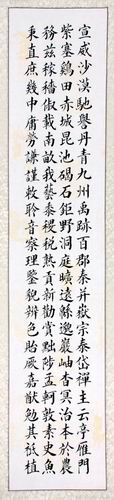 宣威沙漠馳譽丹青九州禹跡百郡秦并嶽宗泰岱禪主云亭雁門
紫塞鷄田赤城昆池碣石鉅野洞庭曠遠緜邈巖岫杳冥治本於農
務茲稼穡俶載南畝我藝黍稷税熟貢新勸賞黜陟孟軻敦素史魚
秉直庶幾中庸勞謙謹敕聆音察理鑒貌辨色貽厥嘉猷勉其祗植